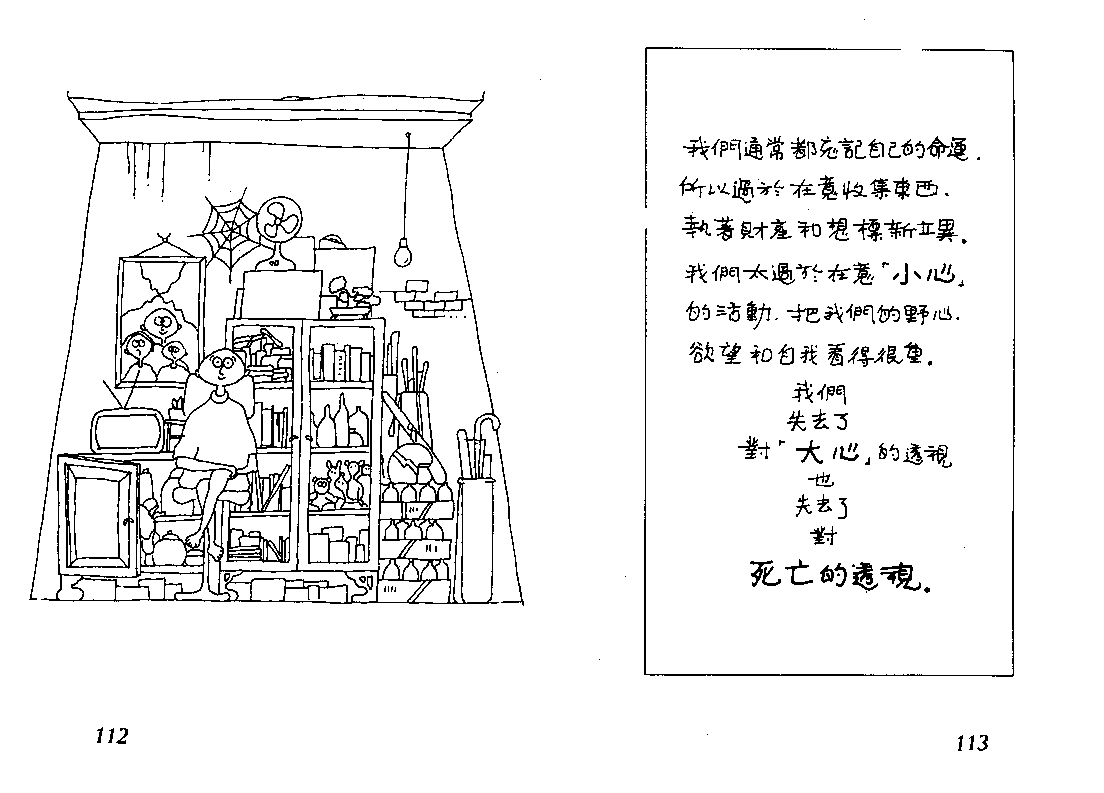 我們通常都忘記自己的命運.
所以過於在意收集東西.
執著財產和想標新立異.
我們太過於在意「小心」
的活動.把我們的野心.
欲望和自我看得很重.
我們
失去了
對「大心」的透視
也
失去了
對
死亡的透視.
112
113